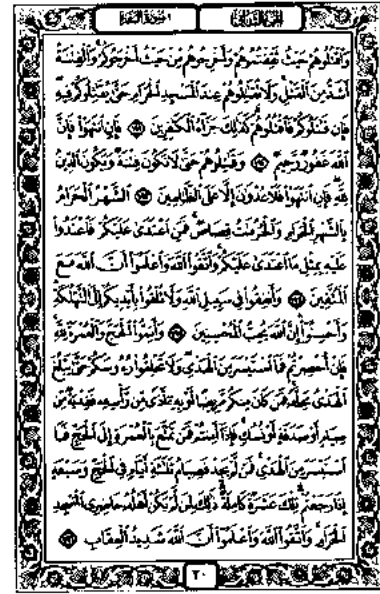 الجزء الثاني
سورة البقرة
وَٱقْتُلُوهُمْ حَيْثُ ثَقِفْتُمُوهُمْ وَأَخْرِجُوهُم مِّنْ حَيْثُ أَخْرَجُوكُمْ وَٱلْفِتْنَةُ
أَشَدُّ مِنَ ٱلْقَتْلِ وَلَا تُقَٰتِلُوهُمْ عِندَ ٱلْمَسْجِدِ ٱلْحَرَامِ حَتَّىٰ يُقَٰتِلُوكُمْ فِيهِ
فَإِن قَٰتَلُوكُمْ فَٱقْتُلُوهُمْ كَذَٰلِكَ جَزَآءُ ٱلْكَٰفِرِينَ ١٩١ فَإِنِ ٱنتَهَوْا۟ فَإِنَّ
ٱللَّهَ غَفُورٌ رَّحِيمٌ ١٩٢ وَقَٰتِلُوهُمْ حَتَّىٰ لَا تَكُونَ فِتْنَةٌ وَيَكُونَ ٱلدِّينُ
لِلَّهِ فَإِنِ ٱنتَهَوْا۟ فَلَا عُدْوَٰنَ إِلَّا عَلَى ٱلظَّٰلِمِينَ ١٩٣ ٱلشَّهْرُ ٱلْحَرَامُ
بِٱلشَّهْرِ ٱلْحَرَامِ وَٱلْحُرُمَٰتُ قِصَاصٌ فَمَنِ ٱعْتَدَىٰ عَلَيْكُمْ فَٱعْتَدُوا۟
عَلَيْهِ بِمِثْلِ مَا ٱعْتَدَىٰ عَلَيْكُمْ وَٱتَّقُوا۟ ٱللَّهَ وَٱعْلَمُوٓا۟ أَنَّ ٱللَّهَ مَعَ
ٱلْمُتَّقِينَ ١٩٤ وَأَنفِقُوا۟ فِى سَبِيلِ ٱللَّهِ وَلَا تُلْقُوا۟ بِأَيْدِيكُمْ إِلَى ٱلتَّهْلُكَةِ
وَأَحْسِنُوٓا۟ إِنَّ ٱللَّهَ يُحِبُّ ٱلْمُحْسِنِينَ ١٩٥ وَأَتِمُّوا۟ ٱلْحَجَّ وَٱلْعُمْرَةَ لِلَّهِ
فَإِنْ أُحْصِرْتُمْ فَمَا ٱسْتَيْسَرَ مِنَ ٱلْهَدْىِ وَلَا تَحْلِقُوا۟ رُءُوسَكُمْ حَتَّىٰ يَبْلُغَ
ٱلْهَدْىُ مَحِلَّهُۥ فَمَن كَانَ مِنكُم مَّرِيضًا أَوْ بِهِۦٓ أَذًى مِّن رَّأْسِهِۦ فَفِدْيَةٌ مِّن
صِيَامٍ أَوْ صَدَقَةٍ أَوْ نُسُكٍ فَإِذَآ أَمِنتُمْ فَمَن تَمَتَّعَ بِٱلْعُمْرَةِ إِلَى ٱلْحَجِّ فَمَا
ٱسْتَيْسَرَ مِنَ ٱلْهَدْىِ فَمَن لَّمْ يَجِدْ فَصِيَامُ ثَلَٰثَةِ أَيَّامٍ فِى ٱلْحَجِّ وَسَبْعَةٍ
إِذَا رَجَعْتُمْ تِلْكَ عَشَرَةٌ كَامِلَةٌ ذَٰلِكَ لِمَن لَّمْ يَكُنْ أَهْلُهُۥ حَاضِرِى ٱلْمَسْجِدِ
ٱلْحَرَامِ وَٱتَّقُوا۟ ٱللَّهَ وَٱعْلَمُوٓا۟ أَنَّ ٱللَّهَ شَدِيدُ ٱلْعِقَابِ ١٩٦
٣٠